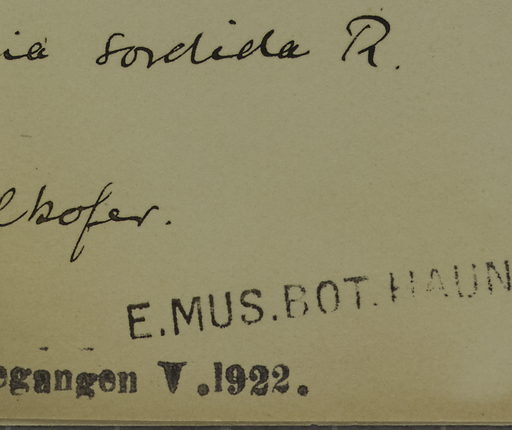 ia sordida R.
lkofer.
E.MUS.BOT.HAUN
egangen V.1922.